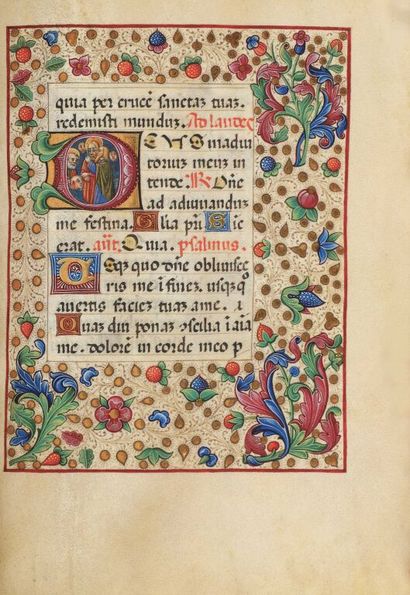 quia per crucē sanctaz tuaz.
redemisti munduz. Ad laudes
DEUS in adiu
torium meuz in
tende. R Dne
ad adiuuanduz
me festina. Glia pri Sic
erat. añt. Quia. psalmus.
Usq quo dne obliuisce
ris me i finez. usqq̃
auertis faciez tuaz a me. i
Quaz diu ponaz ɔsilia i aīa
me. dolorē in corde meo p